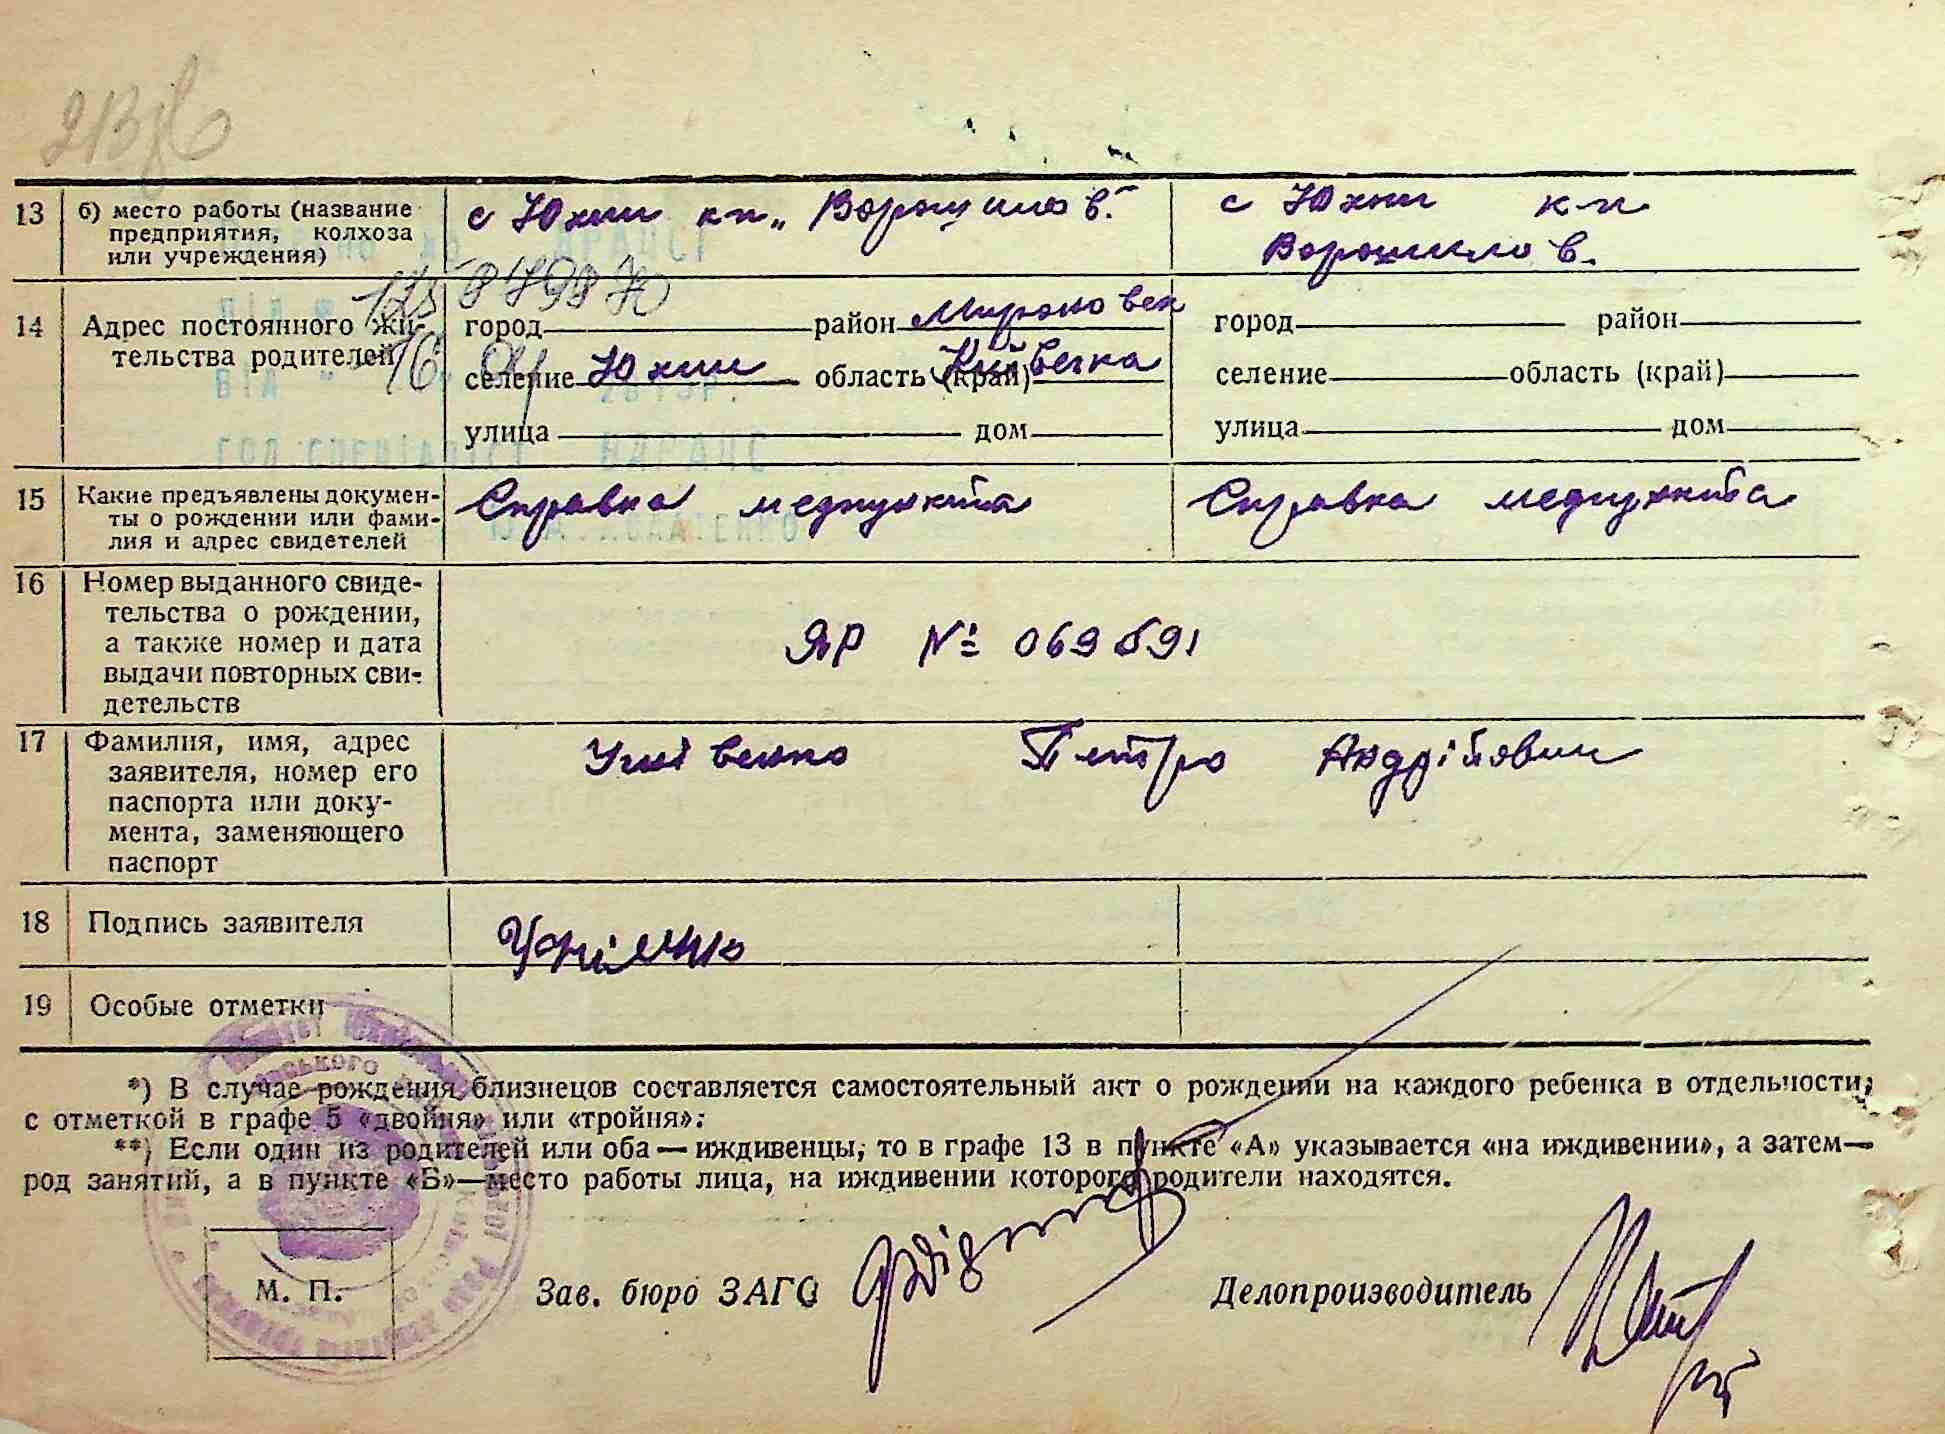 13 б) место работы (название предприятия, колхоза или учреждения)
с Юхни кп „Ворошилов." с Юхни кп
Ворошилов.
14 Адрес постоянного жительства родителей
город район Мироновск город район
селение Юхни область (край) Київська селение область (край)
улица дом улица дом
15 Какие предъявлены документы о рождении или фамилия и адрес свидетелей
Справка медпункта Справка медпункта
16 Номер выданного свидетельства о рождении, а также номер и дата выдачи повторных свидетельств
ЯР № 069591
17 Фамилия, имя, адрес заявителя, номер его паспорта или документа, заменяющего паспорт
Петро Андрійович
18 Подпись заявителя
19 Особые отметки
*) В случае рождения близнецов составляется самостоятельный акт о рождении на каждого ребенка в отдельности,
с отметкой в графе 5 «двойня» или «тройня».
**) Если один из родителей или оба — иждивенцы, то в графе 13 в пункте «А» указывается «на иждивении», а затем—
род занятий, а в пункте «Б»—место работы лица, на иждивении которого родители находятся.
М. П. Зав. бюро ЗАГС Делопроизводитель